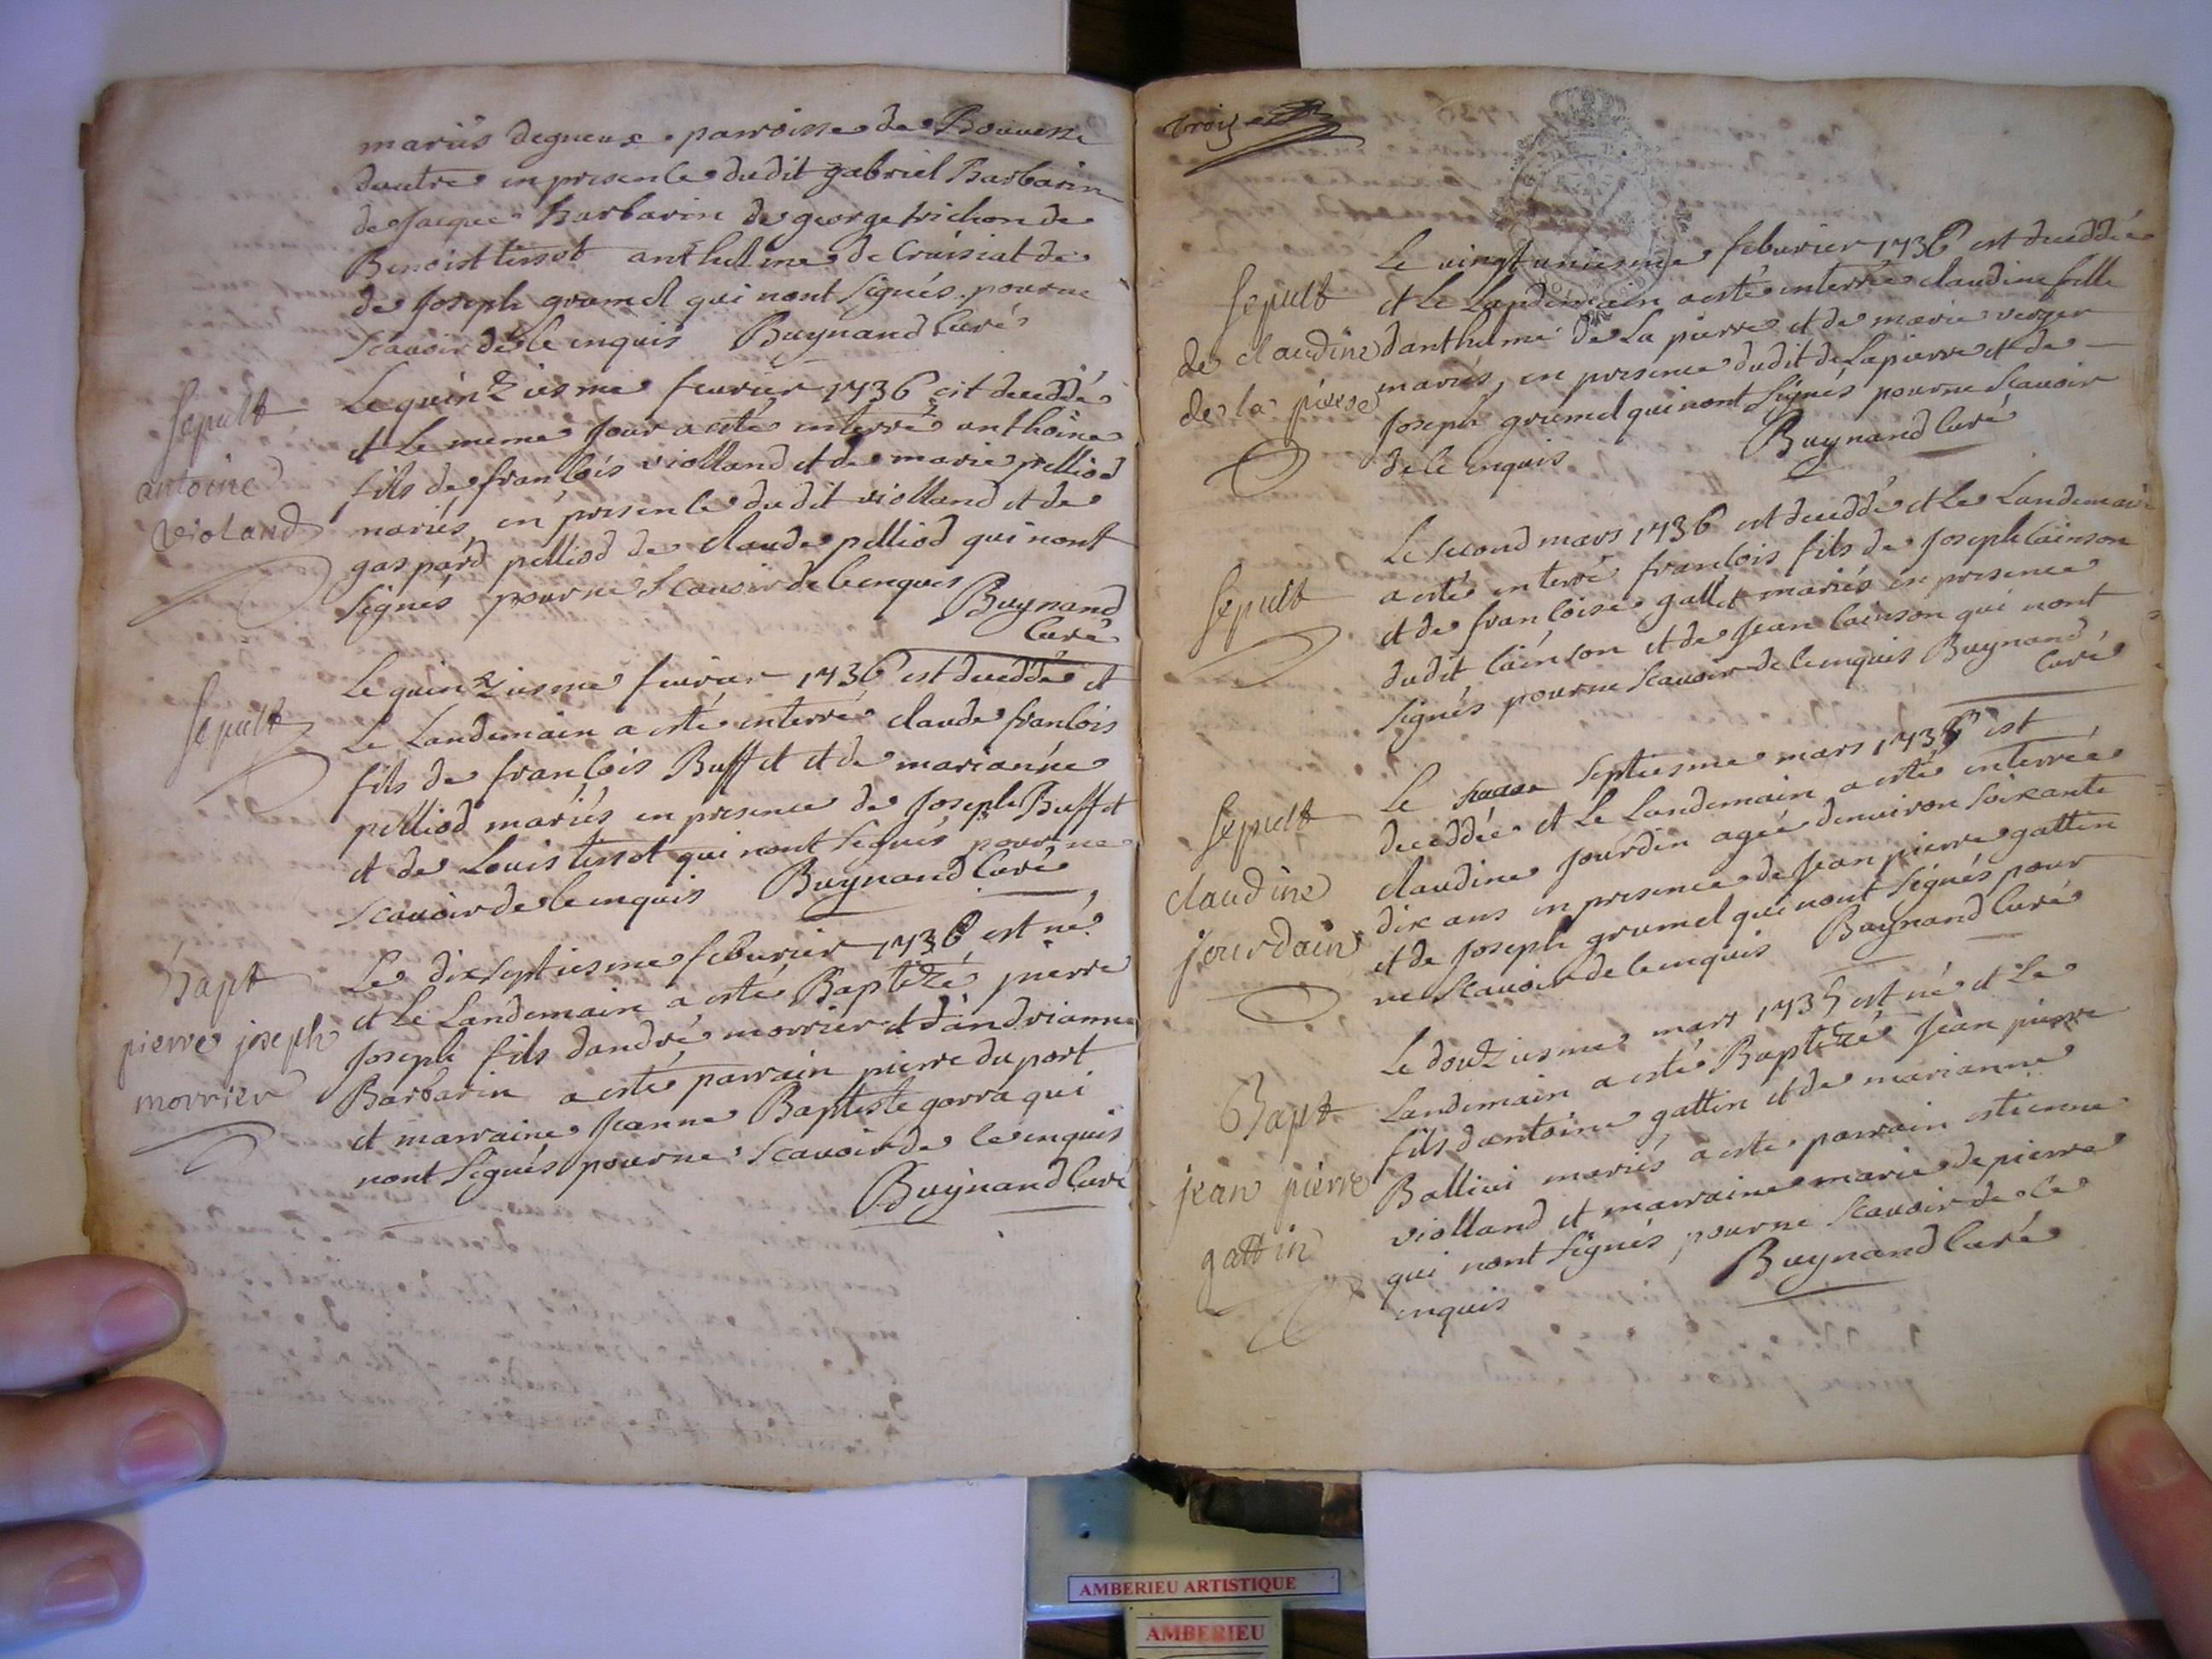 mariés degneux parroisse de Bouvesse
dautre en presence dudit gabriel Barbarin
de Jacque Barbarin de george trichon de
Benoist tissot anthelme de Cruisiat de
de Joseph grumel qui nont signés pour ne
scavoir de ce enquis Buynand Curé
Sepult
antoine
violand
Le quinziesme fevrier 1736 est deceddé
et le meme Jour a esté enterré anthoine
fils de francois violland et de marie pelliod
mariés en presence dudit violland et de
gaspard pelliod de claude pelliod qui nont
signés pour ne scavoir de ce enquis
Buynand
Curé
Sepult
Le quinziesme fevrier 1736 est deceddé et
Le Landemain a esté enterré claude francois
fils de francois Buffet et de marianne
pelliod mariés en presence de Joseph Buffet
et de Louis tissot qui nont signés pour ne
scavoir de ce enquis Buynand Curé
Bapt
pierre joseph
morrier
Le dixseptiesme feburier 1736 est né
et le Landemain a esté Baptizé pierre
Joseph fils dandré morrier et dandrianne
Barbarin a esté parrain pierre duport
et marraine Jeanne Baptiste gorra qui
nont signés pour ne scavoir de ce enquis
Buynand Curé
trois
Sepult
de claudine
de la pierre
Le vingt uniesme feburier 1736 est deceddée
et Le Landemain a esté enterrée claudine fille
danthelme de La pierre et de marie verger
mariés, en presence dudit de Lapierre et de
Joseph grumel qui nont signés pour ne scavoir
de ce enquis Buynand Curé
Sepult
Le second mars 1736 est deceddé et Le Landemain
a esté enterré francois fils de Joseph Cainson
et de francoise gallet mariés en presence
dudit Cainson et de Jean Cainson qui nont
signés pour ne scavoir de ce enquis Buynand
Curé
Sepult
claudine
jourdain
Le septiesme mars 1736 est
deceddée et Le Landemain a esté enterrée
claudine Jourdin agée denviron soixante
dix ans en presence de Jean pierre gattin
et de Joseph grumel qui nont signés pour
ne scavoir de ce enquis Buynand Curé
Bapt
jean pierre
gattin
Le douziesme mars 1735 est né et Le
Landemain a esté Baptizé Jean pierre
fils dantoine gattin et de marianne
Ballivi mariés a esté parrain estienne
violland et marraine marie de pierre
qui nont signés pour ne scavoir de ce
enquis Buynand Curé
AMBERIEU ARTISTIQUE
AMBERIEU